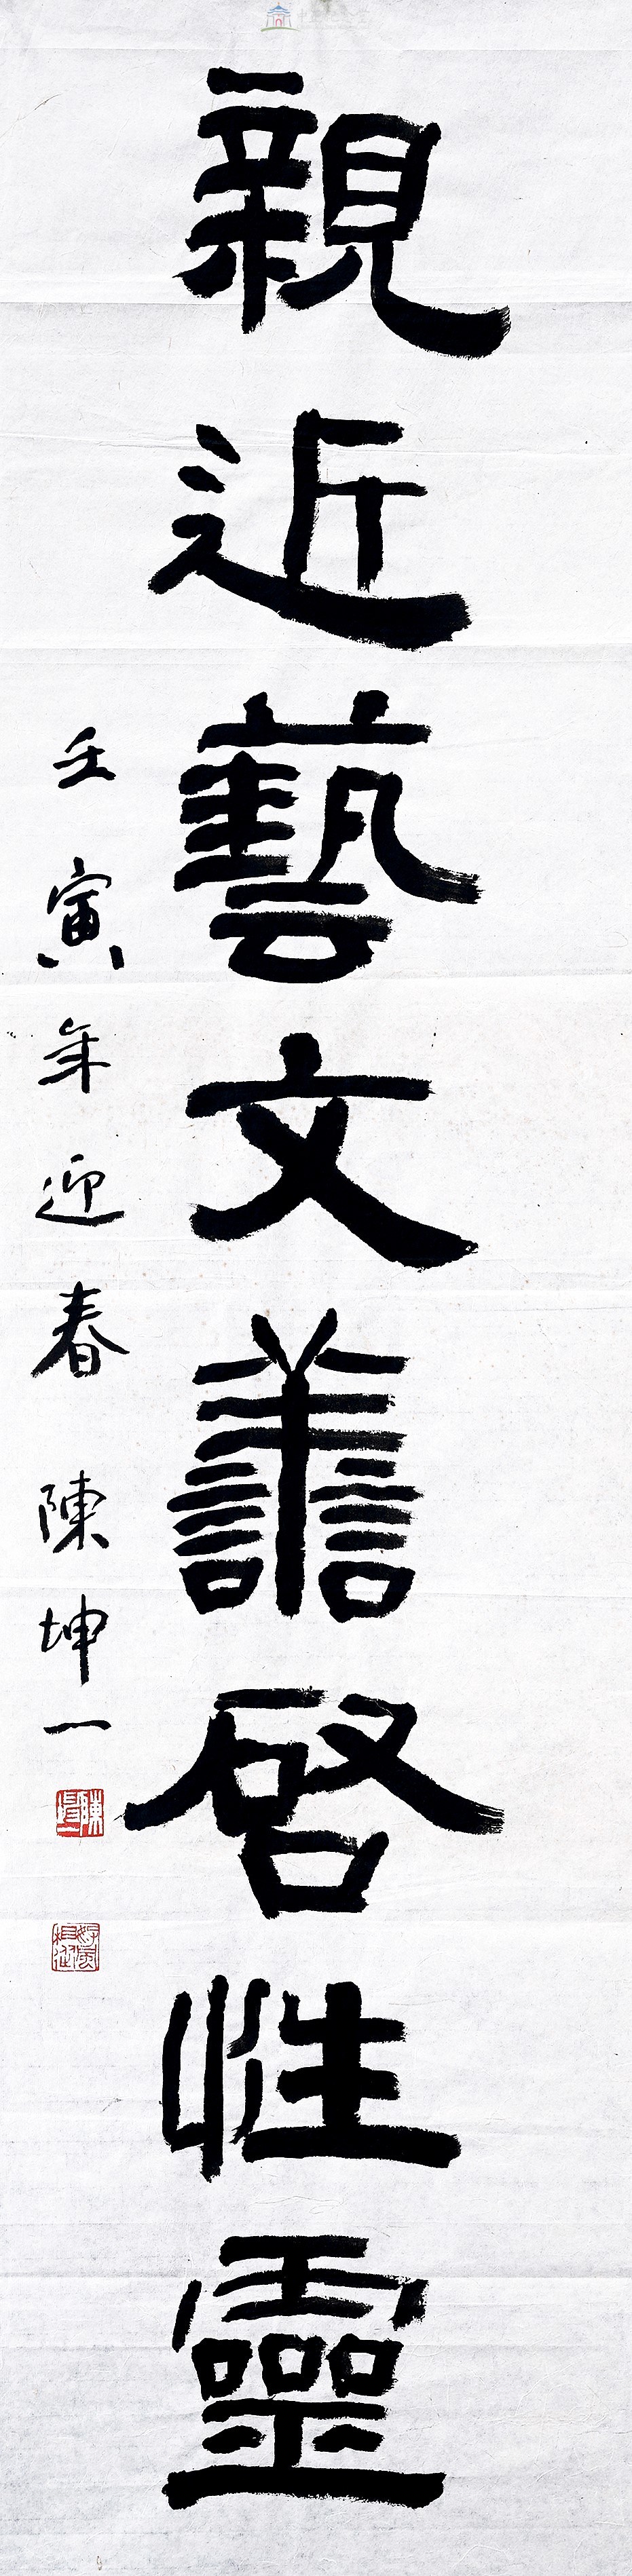 親近藝文譱啓性靈
壬寅年迎春 陳坤一